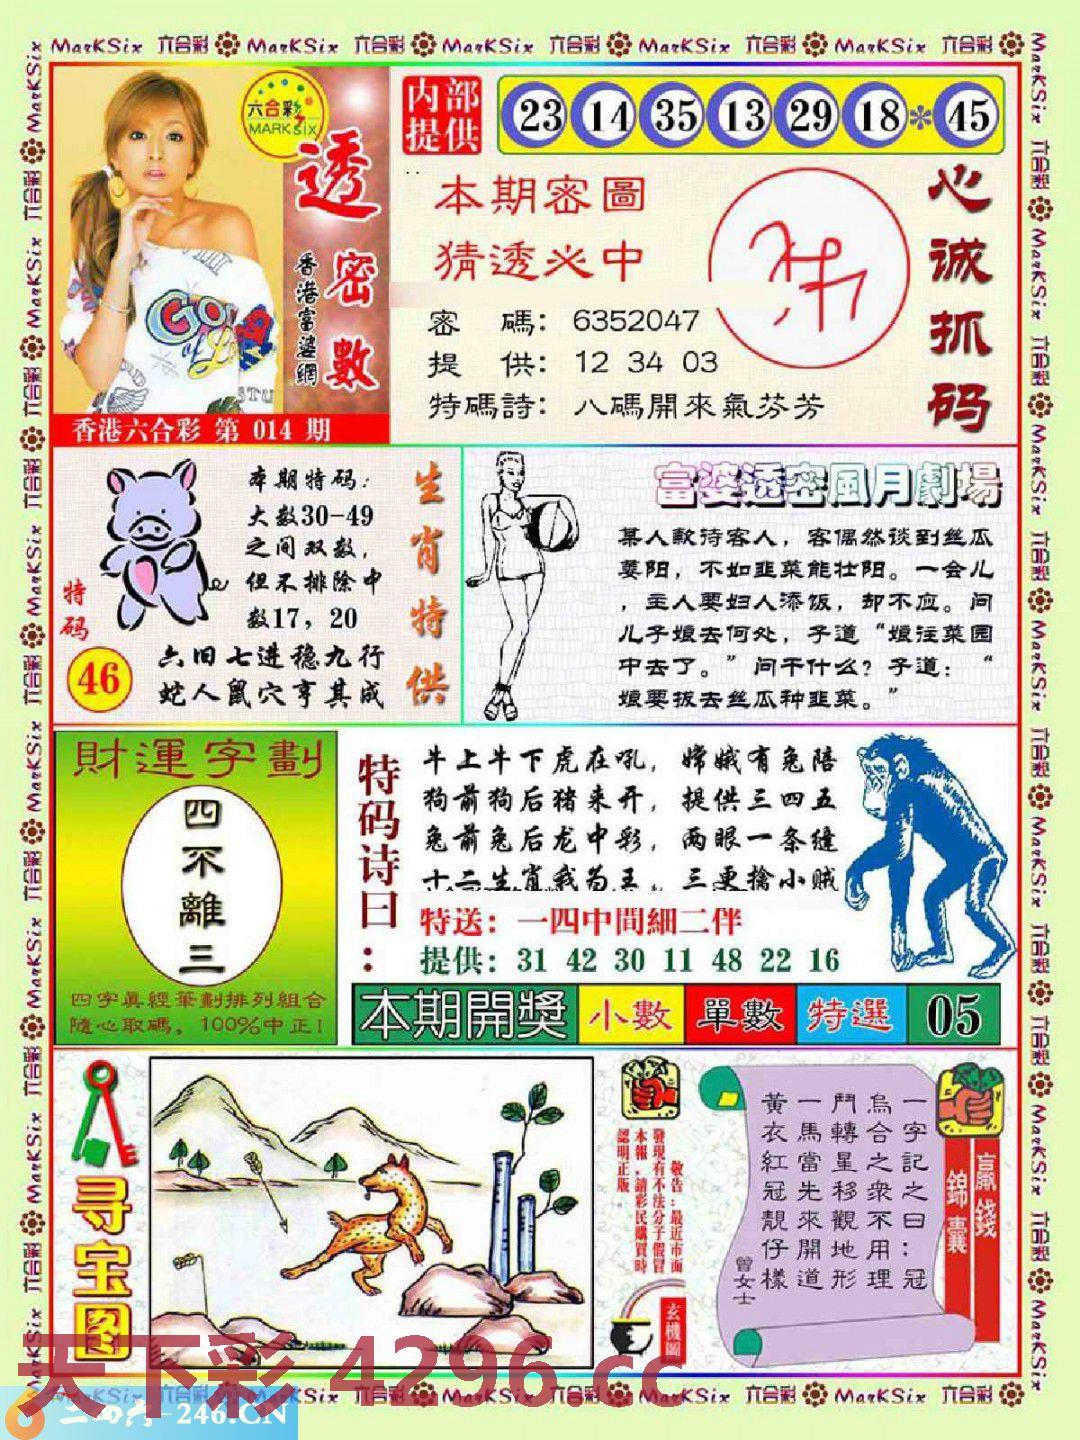 MarKSix 六合彩 MarKSix 六合彩 MarKSix 六合彩 MarKSix 六合彩 MarKSix 六合彩
六合彩
MARK SIX
透密數
香港富婆網
香港六合彩 第 014 期
内部
提供
23 14 35 13 29 18 * 45
本期密圖
猜透必中
密 碼： 6352047
提 供： 12 34 03
特碼詩： 八碼開來氣芬芳
心诚抓码
本期特码：
大数30-49
之间双数，
但不排除中
数17，20
特码
46
六旧七进稳九行
蛇人鼠穴亨其成
生肖特供
富婆透密風月劇場
某人款待客人，客偶然谈到丝瓜
萎阳，不如韭菜能壮阳。一会儿
，主人要妇人添饭，却不应。问
儿子娘去何处，子道“娘往菜园
中去了。”问干什么？子道：“
娘要拔去丝瓜种韭菜。”
財運字劃
四不離三
四字真經筆劃排列組合
隨心取碼，100%中正！
特码诗曰：
牛上牛下虎在吼，嫦娥有兔陪
狗前狗后猪来开，提供三四五
兔前兔后龙中彩，两眼一条缝
十二生肖我为王，三更擒小贼
特送：一四中間細二伴
提供：31 42 30 11 48 22 16
本期開獎 小數 單數 特選 05
寻宝图
敬告：最近市面
發現有不法分子假冒
本報，請彩民購買時
認明正版。
玄機圖
一字記之曰：冠
烏合之衆不用理
鬥轉星移觀地形
一馬當先來開道
黃衣紅冠靚仔樣
曾女士
贏錢
錦囊
天下彩 4296.cc
二四六-246.CN
MarKSix 六合彩 MarKSix 六合彩 MarKSix 六合彩 MarKSix 六合彩